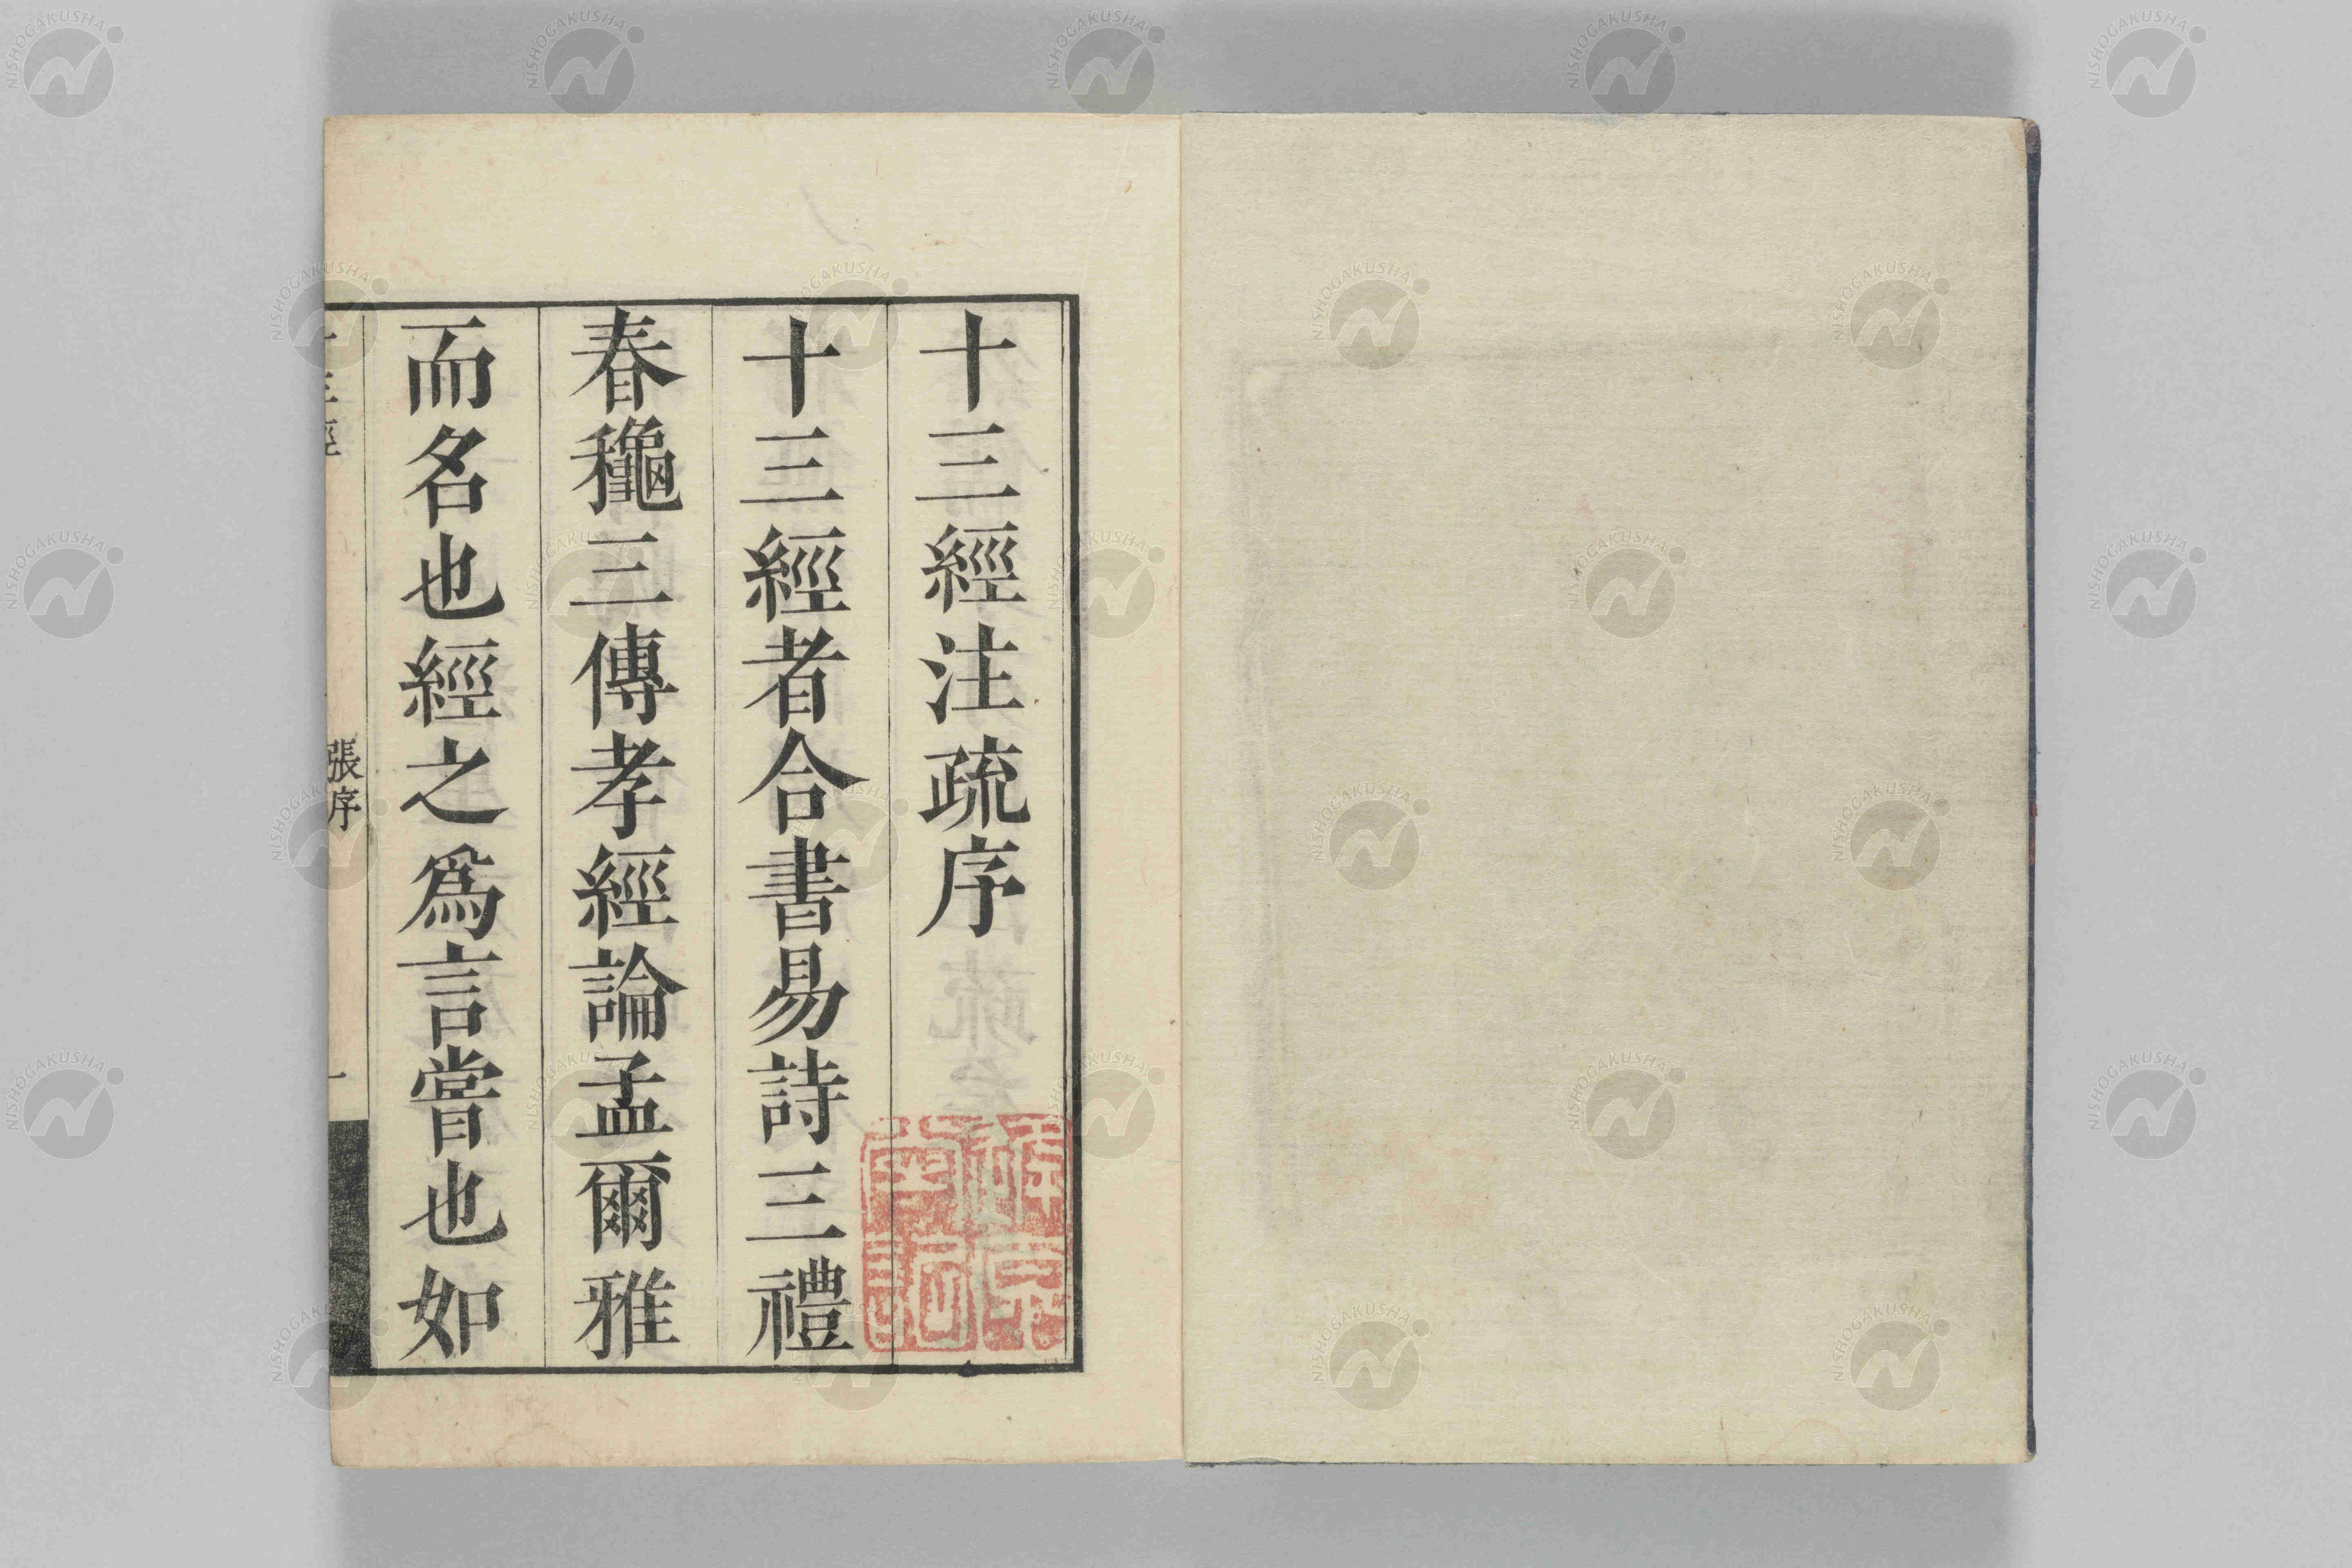 十三經注疏序
十三經者合書易詩三禮
春龝三傳孝經論孟爾雅
而名也經之爲言嘗也如
十三經
張序
一
NISHOGAKUSHA